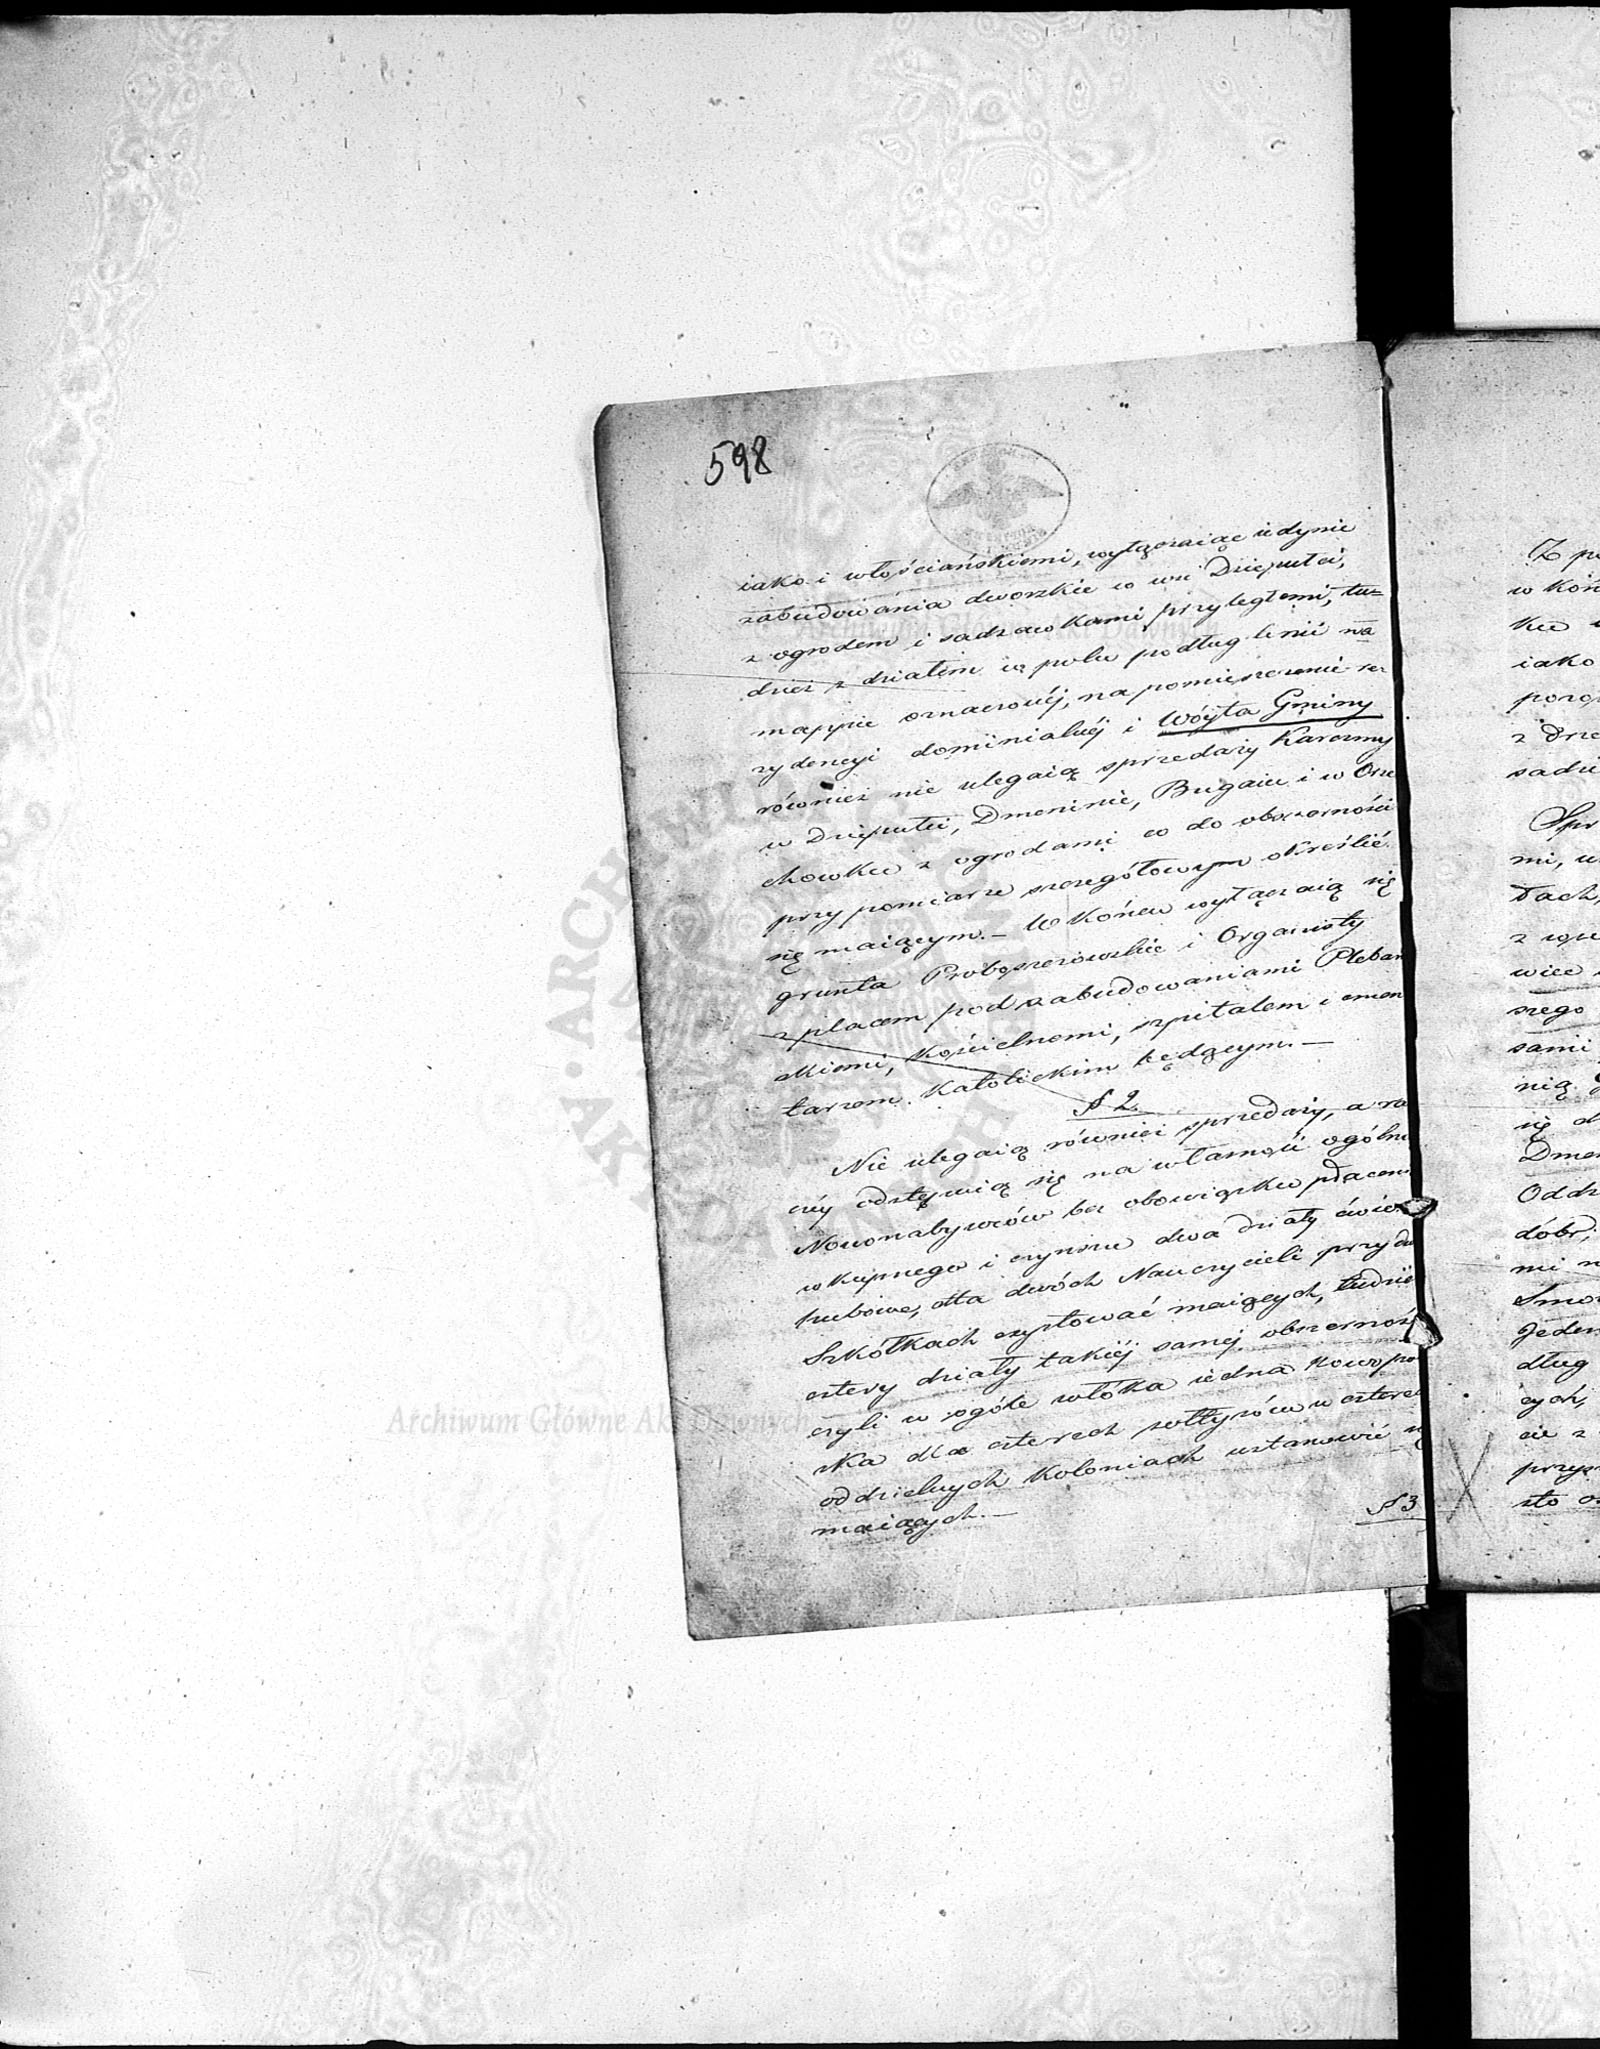 598
iako i włościańskiemi, wyłączaiąc iedynie
zabudowania dworskie w wsi Dziepułci,
z ogrodem i sadzawkami przyległemi, tu=
dzież z działem w polu podług linii na
mappie oznaczonéj, na pomieszczenie re=
zydencyi dominialnéj i Wóyta Gminy
również nie ulegaią sprzedaży Karczmy
w Dziepułci, Dmeninie, Bugaiu i w Orze
chowku z ogrodami co do obszerności
przy pomiarze szczegółowym określić
się maiącym. – W końcu wyłączaią się
grunta Proboszczowskie i Organisty
z placem pod zabudowaniami Pleban
skiemi, Kościelnemi, szpitalem i cmen
tarzem Katolickim będącym. –
§ 2
Nie ulegaią również sprzedaży, a ra
czéy odstępuią się na własność ogólnu
Nowonabywców bez obowiązku płaceni
wkupnego i czynszu dwa działy ćwier
hubowe, dla dwóch Nauczycieli przy dw
Szkółkach exystować maiących, tudzie
cztery działy takiéj samej obszernoś
czyli w ogóle włóka iedna nowopo
ska dla czterech sołtysów w czterec
oddzielnych Koloniach ustanowić si
maiących. –
§ 3
w koń
iako
z Drze
sadzi
Spr
mi, u
szego
sami
nią
się d
Dmen
Oddz
dóbr,
mi n
Jeden
dług
cych,
cie z
sto o
Archiwum Główne Akt Dawnych